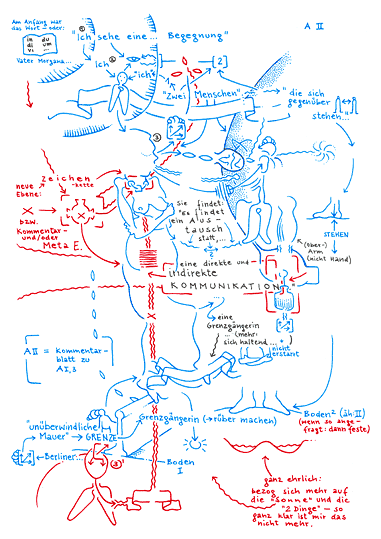 A II
Am Anfang war
das Wort - oder:
in du
di um
vi ...
Vater Morgana...
"ich sehe eine... Begegnung"
ich
"ich"
[2]
"Zwei Menschen"
"die sich
gegenüber
stehen...
Zeichen
-kette
neue
Ebene:
bzw.
Kommentar-
und/oder
Meta E.
sie findet:
"Es findet
ein Aus-
tausch
statt,...
STEHEN
K (Über-)
Arm
(nicht Hand)
eine direkte und
indirekte
KOMMUNIKATION
eine
Grenzgängerin
... (mehr:
sich haltend..."
nicht
erstarrt
AII = Kommentar-
blatt zu
AI,3
Boden² (äh: II)
(wenn so ange-
fragt: dann feste)
"unüberwindliche
Mauer" → GRENZE
Grenzgängerin (→rüber machen)
Berliner...
Boden
I
ganz ehrlich:
bezog sich mehr auf
die "Sonne" und die
"2 Dinge" — so
ganz klar ist mir das
nicht mehr.